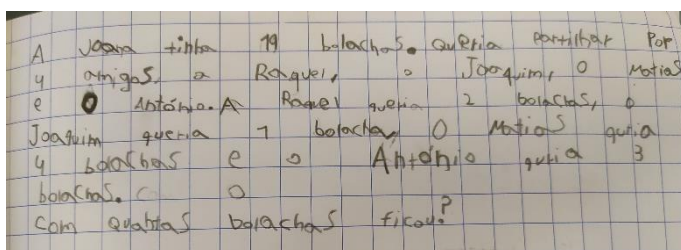 A Joana tinha 19 bolachas. Queria partilhar por
4 amigos, a Raquel, o Joaquim, o Matias
e o António. A Raquel queria 2 bolachas, o
Joaquim queria 1 bolacha, O Matias quria
4 bolachas e o António quria 3
bolachas.
Com quantas bolachas ficou?